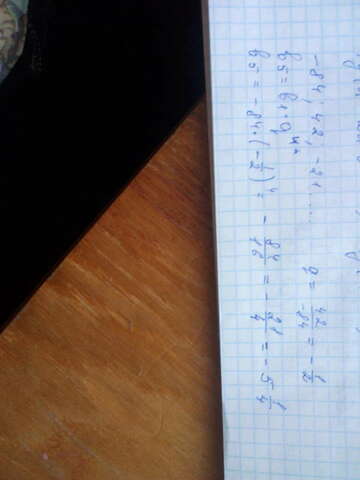 -84; 42, -21..... q = 42/-84 = -1/2
b5 = b1·q^4 =
b5 = -84·(-1/2)^4 = -84/16 = -21/4 = -5 1/4